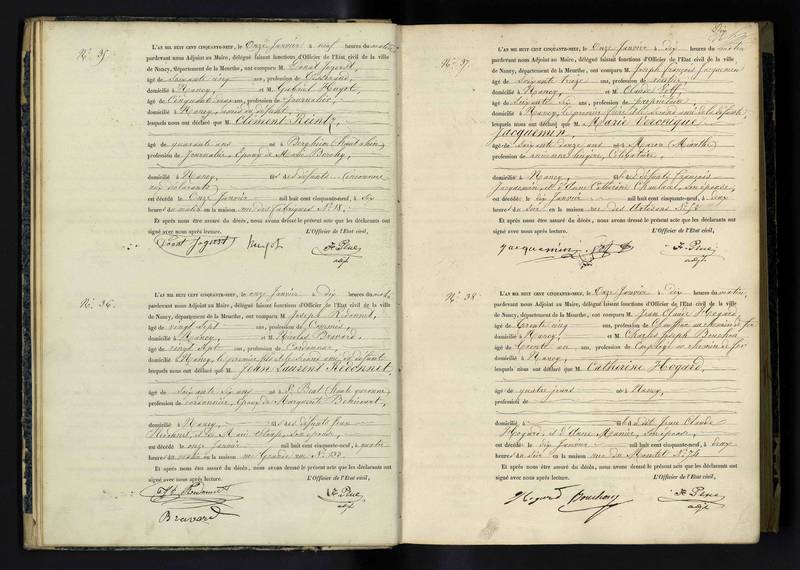 N.° 35
L'AN MIL HUIT CENT CINQUANTE-NEUF, le Onze Janvier à neuf heures du matin
pardevant nous Adjoint au Maire, délégué faisant fonctions d'Officier de l'Etat civil de la ville
de Nancy, département de la Meurthe, ont comparu M. Donat
âgé de Soixante cinq ans, profession de Tisserand,
domicilié à Nancy, et M. Gabriel Hugot,
âgé de Cinquante ans, profession de Journalier,
domicilié à Nancy, amis du défunt
lesquels nous ont déclaré que M. Clément Reintz,
âgé de quarante ans né à Bergheim (Haut Rhin)
profession de Journalier, Epoux de Marie
domicilié à Nancy, fils de défunts
aux déclarants
est décédé le Onze Janvier mil huit cent cinquante-neuf, à six
heures du matin en la maison rue des fabriques N.° 18.
Et après nous être assuré du décès, nous avons dressé le présent acte que les déclarants ont
signé avec nous après lecture. L'Officier de l'Etat civil,
Donat Hugot
adjt
N.° 36
L'AN MIL HUIT CENT CINQUANTE-NEUF, le onze Janvier à dix heures du matin
pardevant nous Adjoint au Maire, délégué faisant fonctions d'Officier de l'Etat civil de la ville
de Nancy, département de la Meurthe, ont comparu M. Joseph Rédonnet,
âgé de vingt sept ans, profession de Commis,
domicilié à Nancy, et M. Nicolas Bravard,
âgé de vingt sept ans, profession de Cordonnier,
domicilié à Nancy, le premier fils et le second ami du défunt
lesquels nous ont déclaré que M. Jean Laurent Rédonnet,
âgé de Soixante six ans né à St. Béat (Haute garonne)
profession de cordonnier, Epoux de Marguerite
domicilié à Nancy, fils des défunts Jean
Rédonnet, et de son épouse,
est décédé le onze Janvier mil huit cent cinquante-neuf, à quatre
heures du matin en la maison rue Grande rue N.°
Et après nous être assuré du décès, nous avons dressé le présent acte que les déclarants ont
signé avec nous après lecture. L'Officier de l'Etat civil,
Rédonnet
adjt
Bravard
N.° 37
L'AN MIL HUIT CENT CINQUANTE-NEUF, le Onze Janvier à dix heures du matin
pardevant nous Adjoint au Maire, délégué faisant fonctions d'Officier de l'Etat civil de la ville
de Nancy, département de la Meurthe, ont comparu M. Joseph François Jacquemin
âgé de Soixante treize ans, profession de rentier,
domicilié à Nancy, et M. Claude
âgé de Soixante six ans, profession de propriétaire,
domicilié à Nancy, le premier frère et le second ami de la défunte
lesquels nous ont déclaré que M. Marie Véronique
Jacquemin,
âgé de Soixante douze ans né à Maron (Meurthe)
profession de ancienne lingère, Célibataire,
domicilié à Nancy, fille des défunts François
Jacquemin, et d'Anne Catherine son épouse,
est décédé le dix Janvier mil huit cent cinquante-neuf, à onze
heures du soir en la maison rue des Artisans N.°
Et après nous être assuré du décès, nous avons dressé le présent acte que les déclarants ont
signé avec nous après lecture. L'Officier de l'Etat civil,
Jacquemin
adjt
N.° 38
L'AN MIL HUIT CENT CINQUANTE-NEUF, le Onze Janvier à dix heures du matin,
pardevant nous Adjoint au Maire, délégué faisant fonctions d'Officier de l'Etat civil de la ville
de Nancy, département de la Meurthe, ont comparu M. Jean Claude Hogard,
âgé de trente cinq ans, profession de Chauffeur au chemin de fer
domicilié à Nancy, et M. Charles Joseph Bouchon,
âgé de trente un ans, profession de Employé au chemin de fer
domicilié à Nancy,
lesquels nous ont déclaré que M. Catherine Hogard,
âgé de quatre jours né à Nancy,
profession de
domicilié à fille de dit Jean Claude
Hogard, et d'Anne Meunier, son épouse,
est décédé le dix Janvier mil huit cent cinquante-neuf, à onze
heures du soir en la maison rue du Montet N.° 74
Et après nous être assuré du décès, nous avons dressé le présent acte que les déclarants ont
signé avec nous après lecture. L'Officier de l'Etat civil,
Hogard Bouchon
adjt